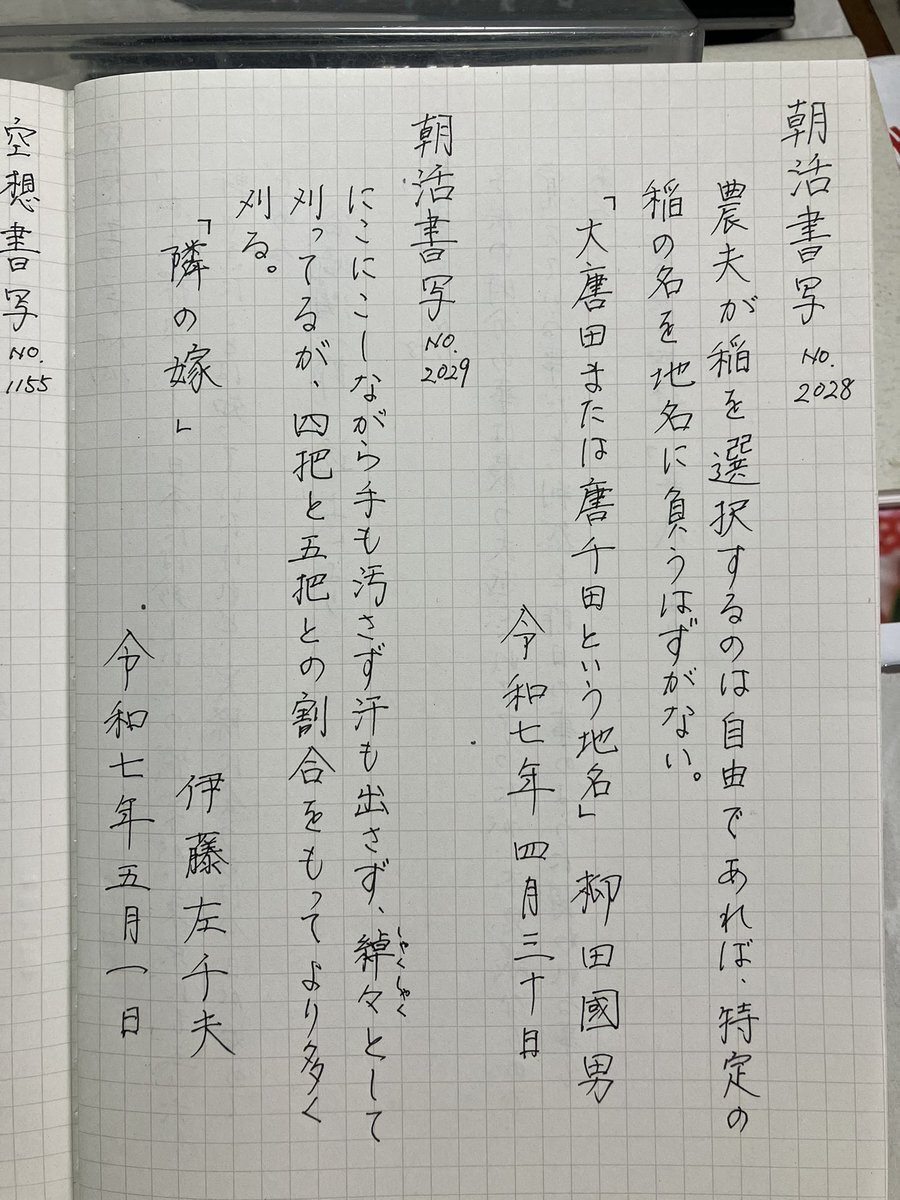 朝活書写 NO.2028
農夫が稲を選択するのは自由であれば、特定の
稲の名を地名に負うはずがない。
「大唐田または唐千田という地名」 柳田國男
令和七年 四月三十日
朝活書写 NO.2029
にこにこしながら手も汚さず汗も出さず、綽々として
しゃくしゃく
刈ってるが、四把と五把との割合をもってより多く
刈る。
「隣の嫁」
伊藤左千夫
令和七年五月一日
空想書写 NO.1155